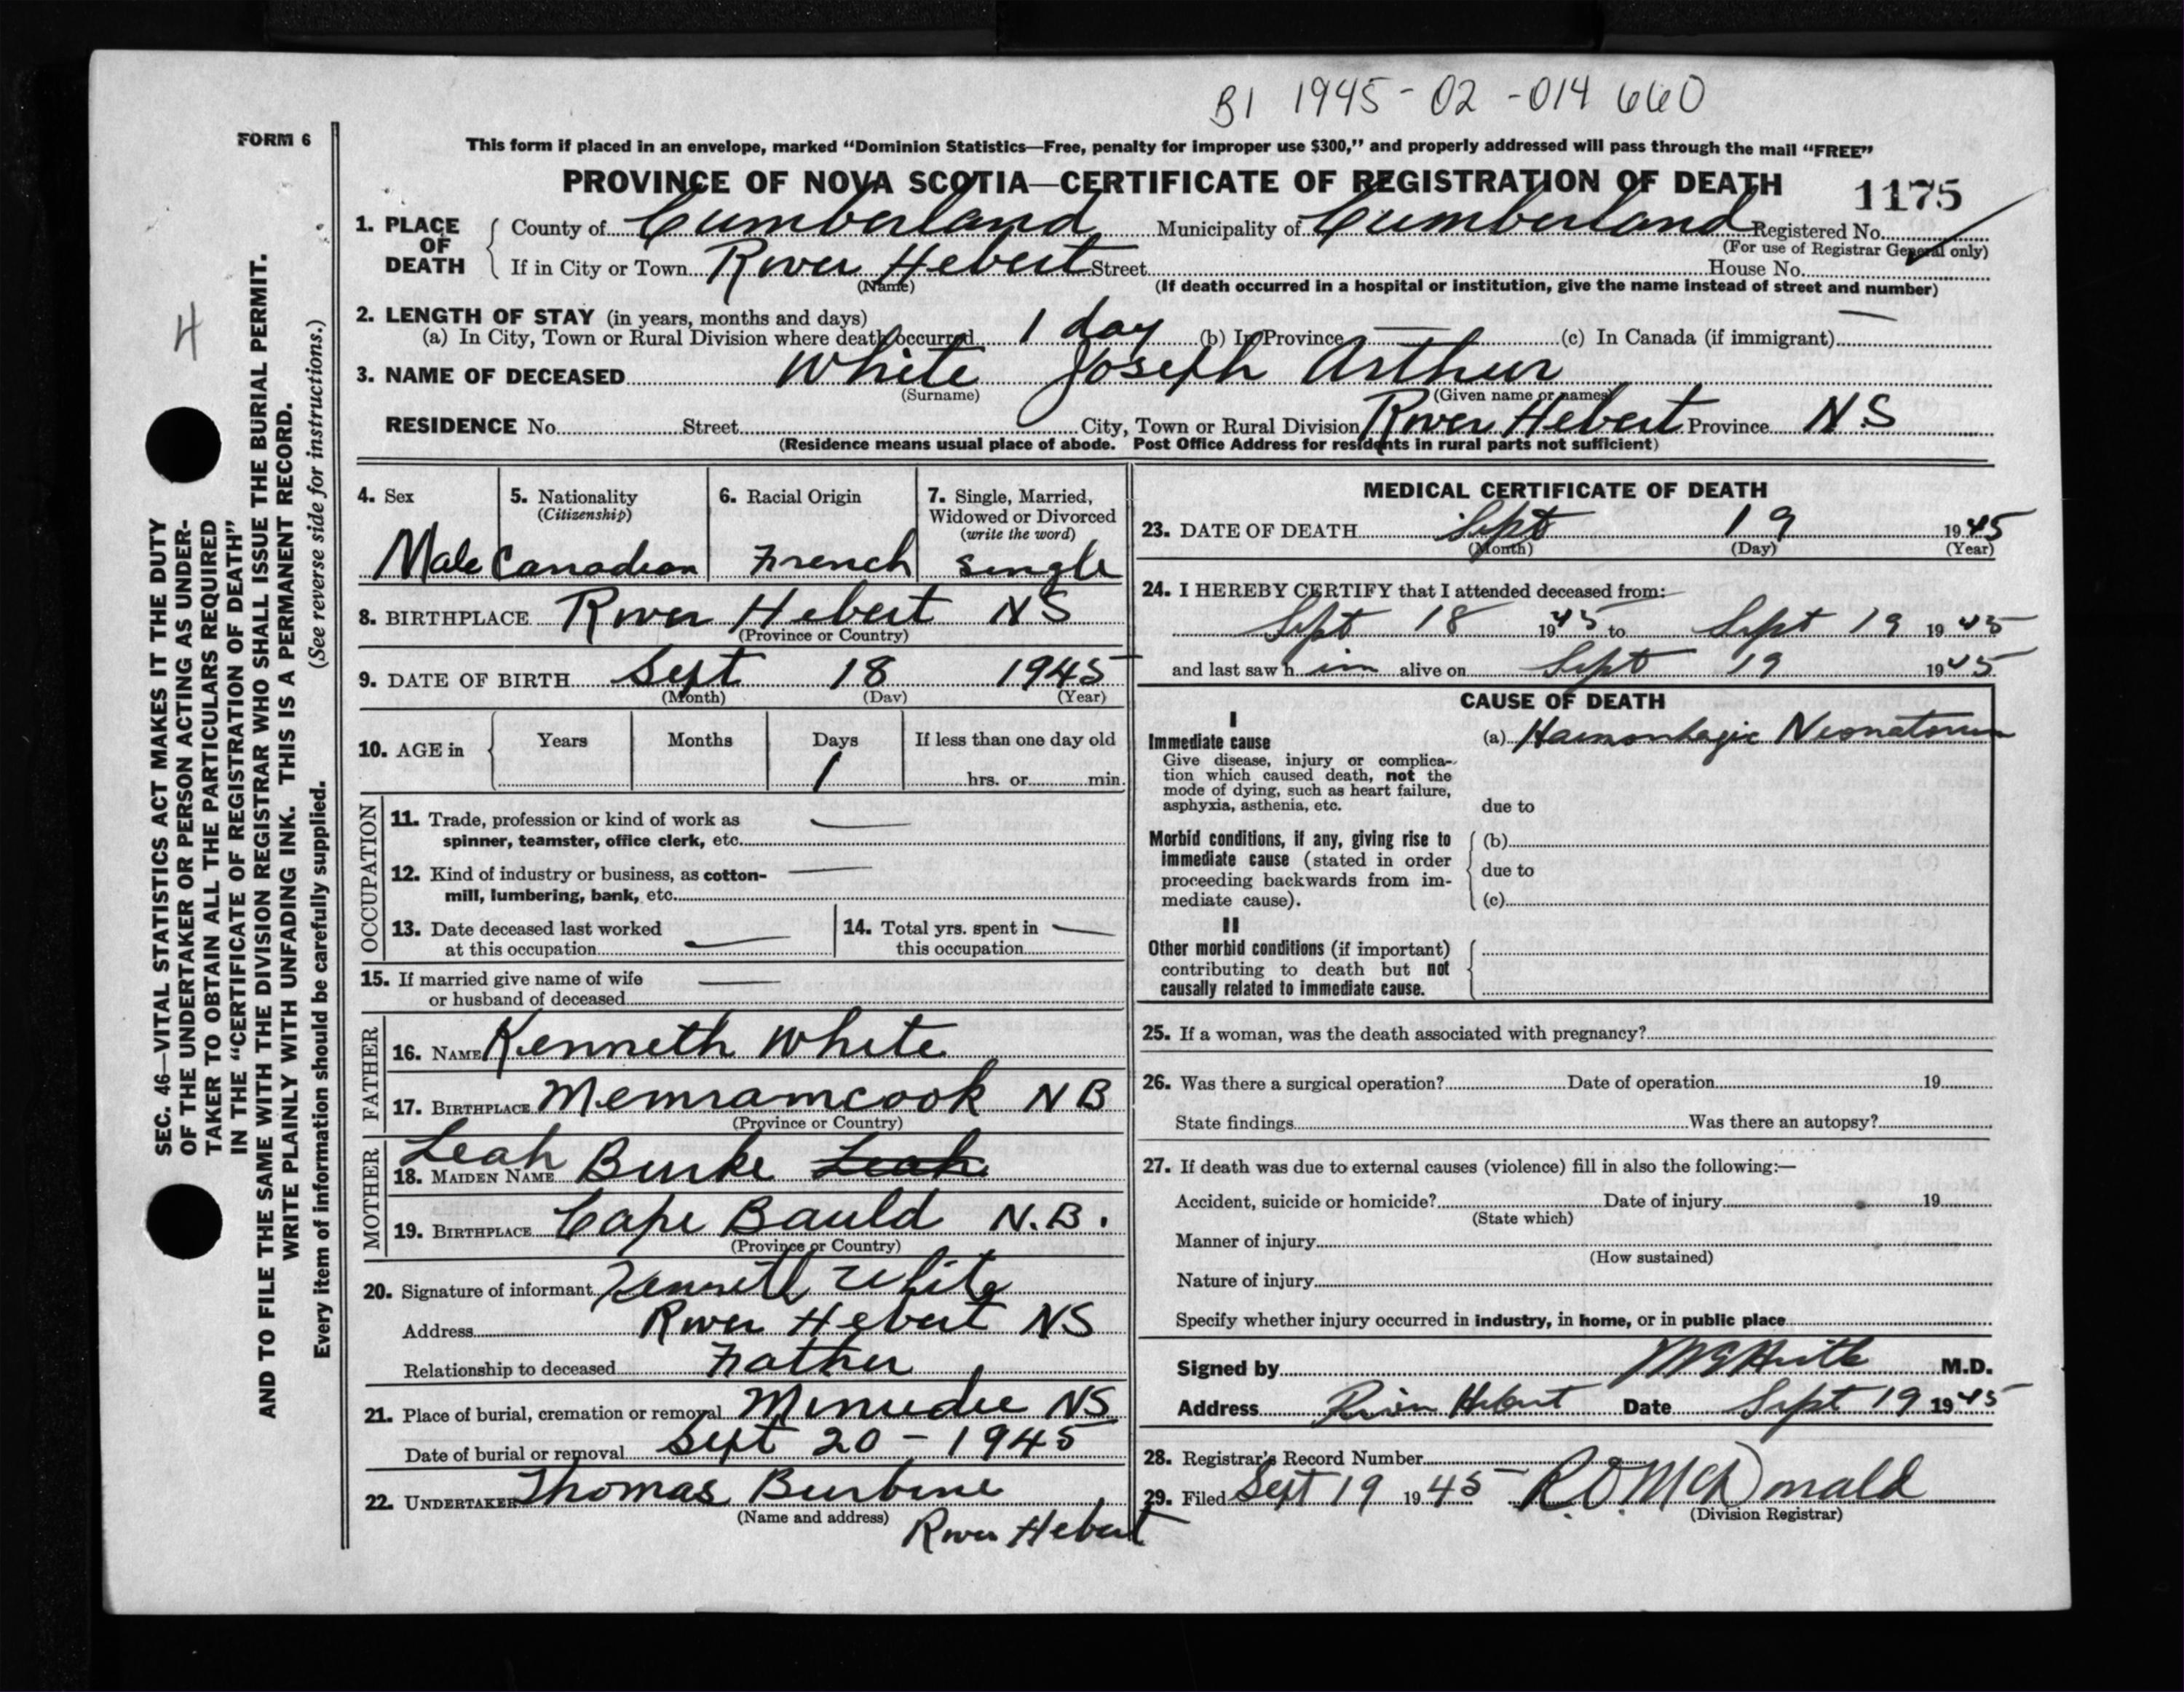 B1 1945-02-014660
FORM 6
This form if placed in an envelope, marked “Dominion Statistics—Free, penalty for improper use $300,” and properly addressed will pass through the mail “FREE”
PROVINCE OF NOVA SCOTIA—CERTIFICATE OF REGISTRATION OF DEATH 1175
1. PLACE OF DEATH County of Cumberland Municipality of Cumberland Registered No.
(For use of Registrar General only)
If in City or Town River Hebert Street House No.
(Name) (If death occurred in a hospital or institution, give the name instead of street and number)
2. LENGTH OF STAY (in years, months and days)
(a) In City, Town or Rural Division where death occurred 1 day (b) In Province — (c) In Canada (if immigrant) —
3. NAME OF DECEASED White Joseph Arthur
(Surname) (Given name or names)
RESIDENCE No. Street City, Town or Rural Division River Hebert Province N.S
(Residence means usual place of abode. Post Office Address for residents in rural parts not sufficient)
4. Sex
Male
5. Nationality
(Citizenship)
Canadian
6. Racial Origin
French
7. Single, Married,
Widowed or Divorced
(write the word)
single
8. BIRTHPLACE River Hebert NS
(Province or Country)
9. DATE OF BIRTH Sept 18 1945
(Month) (Day) (Year)
10. AGE in Years Months Days If less than one day old
1 hrs. or min.
OCCUPATION
11. Trade, profession or kind of work as —
spinner, teamster, office clerk, etc.
12. Kind of industry or business, as cotton- —
mill, lumbering, bank, etc.
13. Date deceased last worked
at this occupation —
14. Total yrs. spent in —
this occupation
15. If married give name of wife —
or husband of deceased
FATHER
16. NAME Kenneth White
17. BIRTHPLACE Memramcook N B
(Province or Country)
MOTHER
Leah
18. MAIDEN NAME Burke Leah
19. BIRTHPLACE Cape Bauld N.B.
(Province or Country)
20. Signature of informant Kenneth White
Address River Hebert NS
Relationship to deceased Father
21. Place of burial, cremation or removal Minudie NS
Date of burial or removal Sept 20 - 1945
22. UNDERTAKER Thomas Burbine
(Name and address) River Hebert
MEDICAL CERTIFICATE OF DEATH
23. DATE OF DEATH Sept 19 1945
(Month) (Day) (Year)
24. I HEREBY CERTIFY that I attended deceased from:
Sept 18 1945 to Sept 19 1945
and last saw h im alive on Sept 19 1945
CAUSE OF DEATH
I
Immediate cause (a) Haemorrhagic Neonatorum
Give disease, injury or complica-
tion which caused death, not the
mode of dying, such as heart failure,
asphyxia, asthenia, etc. due to
Morbid conditions, if any, giving rise to (b)
immediate cause (stated in order
proceeding backwards from im- due to
mediate cause). (c)
II
Other morbid conditions (if important)
contributing to death but not
causally related to immediate cause.
25. If a woman, was the death associated with pregnancy?
26. Was there a surgical operation? Date of operation 19
State findings Was there an autopsy?
27. If death was due to external causes (violence) fill in also the following:—
Accident, suicide or homicide? Date of injury 19
(State which)
Manner of injury
(How sustained)
Nature of injury
Specify whether injury occurred in industry, in home, or in public place
Signed by M.D.
Address River Hebert Date Sept 19 1945
28. Registrar's Record Number
29. Filed Sept 19 1945 R.O. McDonald
(Division Registrar)
4
SEC. 46—VITAL STATISTICS ACT MAKES IT THE DUTY
OF THE UNDERTAKER OR PERSON ACTING AS UNDER-
TAKER TO OBTAIN ALL THE PARTICULARS REQUIRED
IN THE “CERTIFICATE OF REGISTRATION OF DEATH”
AND TO FILE THE SAME WITH THE DIVISION REGISTRAR WHO SHALL ISSUE THE BURIAL PERMIT.
WRITE PLAINLY WITH UNFADING INK. THIS IS A PERMANENT RECORD.
Every item of information should be carefully supplied. (See reverse side for instructions.)